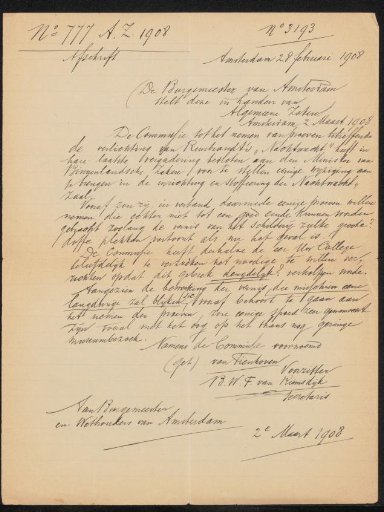 No 777 A.Z. 1908
No 3193
Afschrift
Amsterdam 28 februarie 1908
De Burgemeester van Amsterdam
stelt deze in handen van
Algemene Zaken
Amsterdam, 2 Maart 1908
De Commissie tot het nemen van proeven betreffende
de verlichting van Rembrandt's "Nachtwacht" heeft in
hare laatste vergadering besloten aan den Minister van
Binnenlandsche Zaken voor te stellen eenige wijziging aan
te brengen in de inrichting en stoffeering der Nachtwacht-
zaal.
Vooraf zou zij in verband daarmede eenige proeven willen
nemen die echter niet tot een goed einde kunnen worden
gebracht zoolang de vernis van het Schilderij zulke groote
doffe plekken vertoont als nu het geval is.
De Commissie heeft derhalve de eer Uw College
beleefdelijk te verzoeken het noodige te willen ver-
richten opdat dit gebrek dadelijk verholpen worde.
Aangezien de bewerking der vernis die misschien eene
langdurige zal blijken, vooraf behoort te gaan aan
het nemen der proeven, zou eenige spoed zeer gewenscht
zijn vooral met het oog op het thans nog geringe
museumbezoek.
Namens de Commissie voornoemd
(get) van Tienhoven
Voorzitter
B.W.F. van Riemsdijk
Secretaris
Aan Burgemeester
en Wethouders van Amsterdam
2e Maart 1908